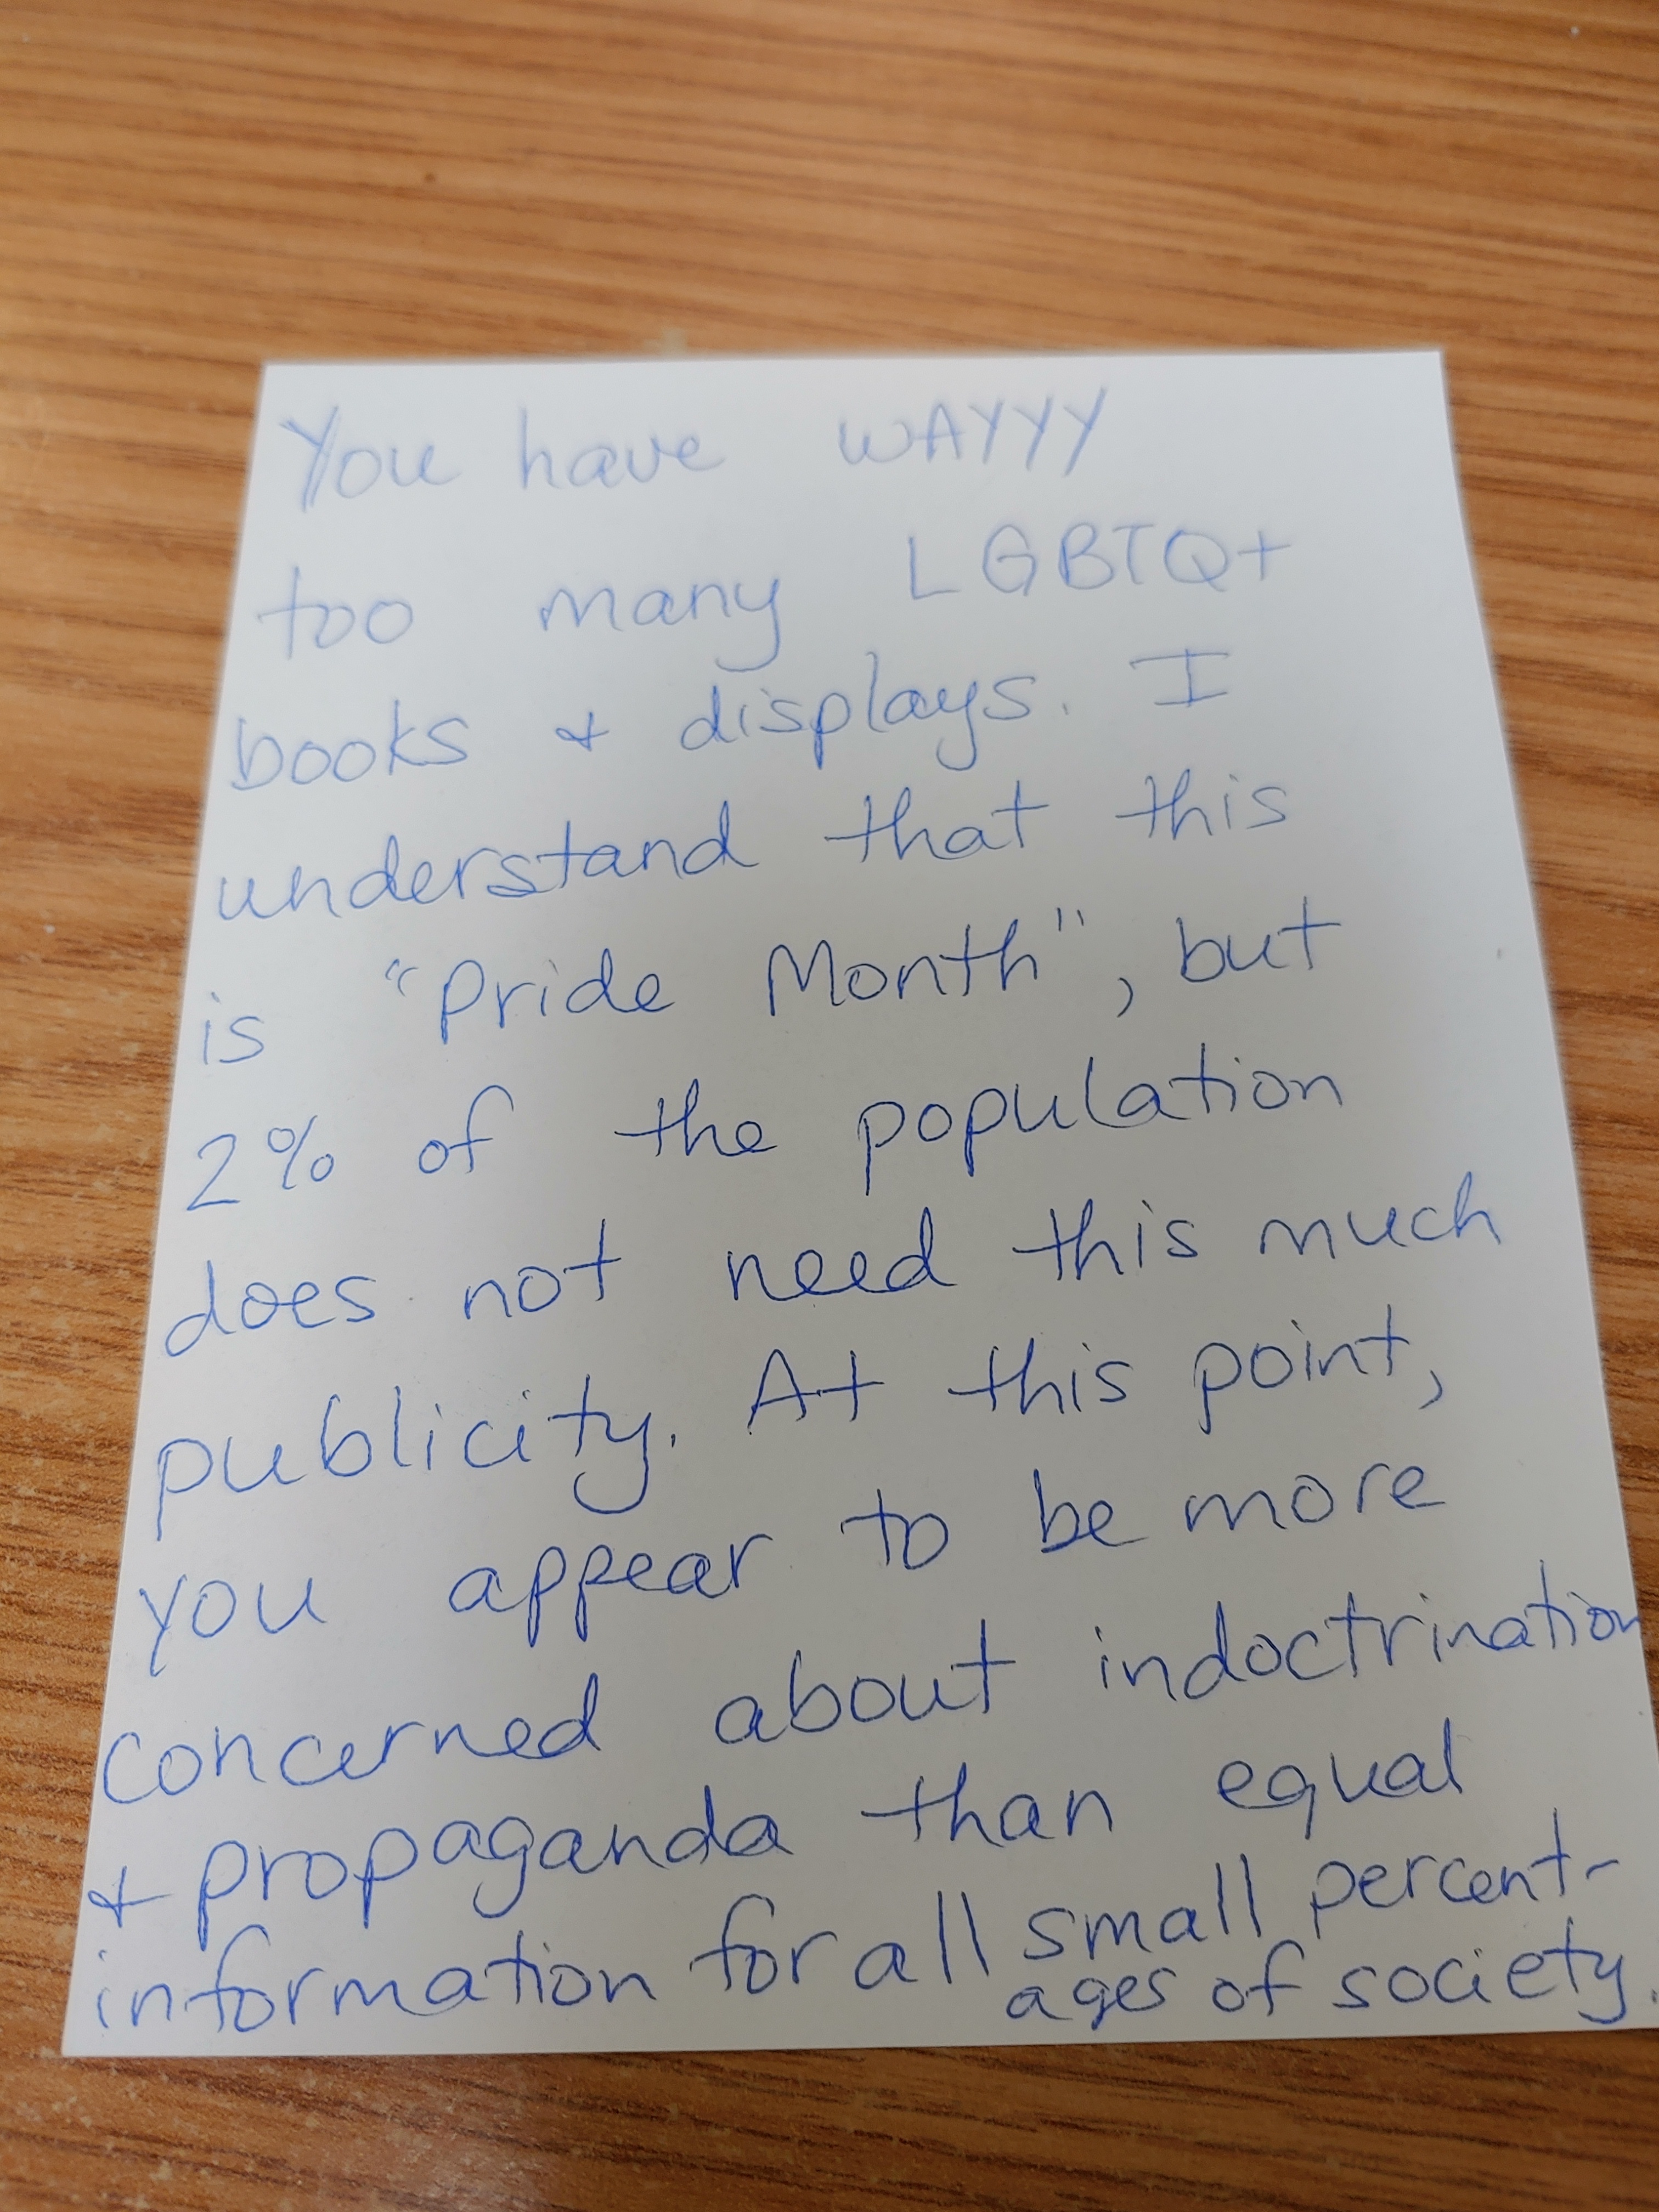 You have WAYYY
too many LGBTQ+
books & displays. I
understand that this
is "Pride Month", but
2% of the population
does not need this much
publicity. At this point,
you appear to be more
concerned about indoctrination
& propaganda than equal
information for all small percent-
ages of society.